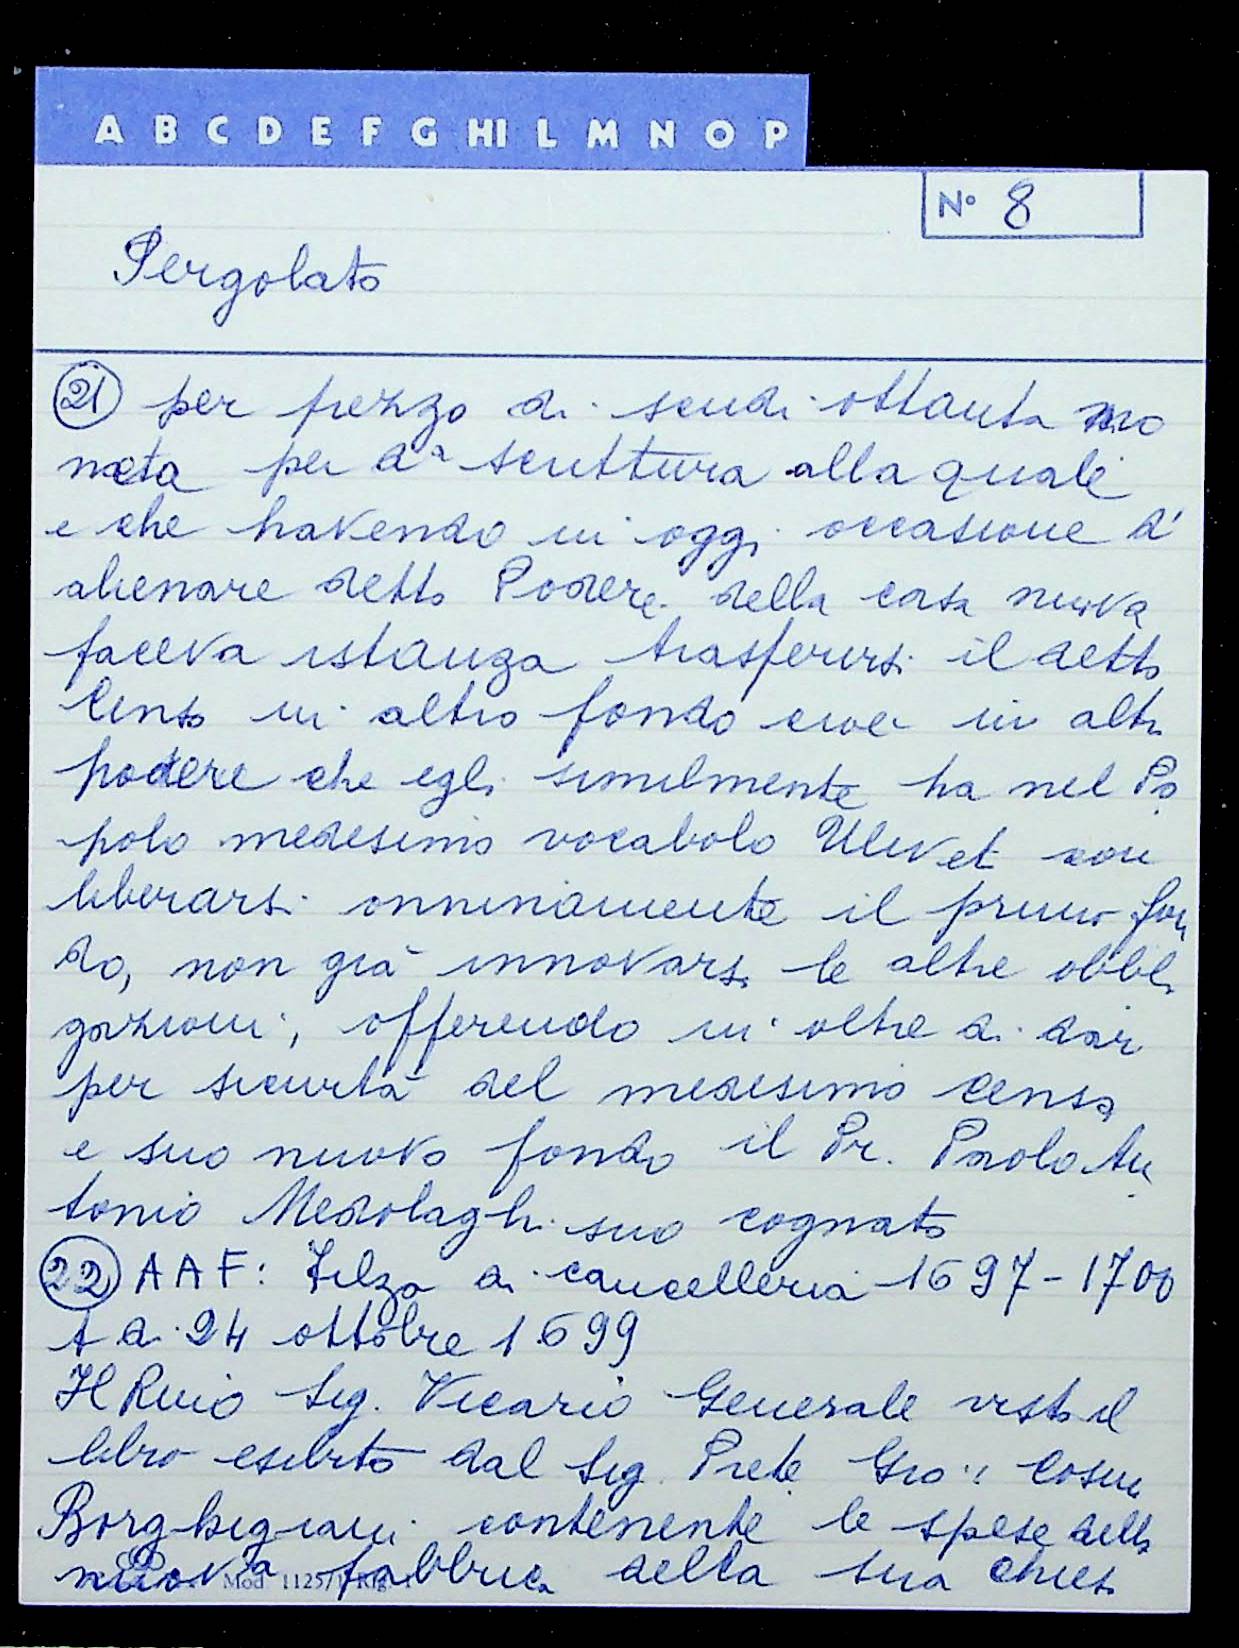 A B C D E F G HI L M N O P
N° 8
Pergolato
21 per prezzo di scudi ottanta mo
neta per da scrittura alla quale
e che havendo in oggi occasione d'
alienare detto Podere della casa nuova
faceva istanza trasferirsi il detto
Censo in altro fondo cioè in altro
podere che egli similmente ha nel Po
polo medesimo vocabolo Ulivet con
liberarsi onninamente il primo fon
do, non già innovarsi le altre obbli
gazioni, offerendo in oltre di dar
per sicurtà del medesimo censo
e suo nuovo fondo il Pr. Paolo An
tonio Medolaghi suo cognato
22 AAF: Filza di cancelleria 1697-1700
A di 24 ottobre 1699
Il Rmo Sig. Vicario Generale visto il
libro esibito dal Sig. Prete Gio: Cosimo
Borghigiani contenente le spese della
nuova fabbrica della sua chiesa
Mod. 1125/